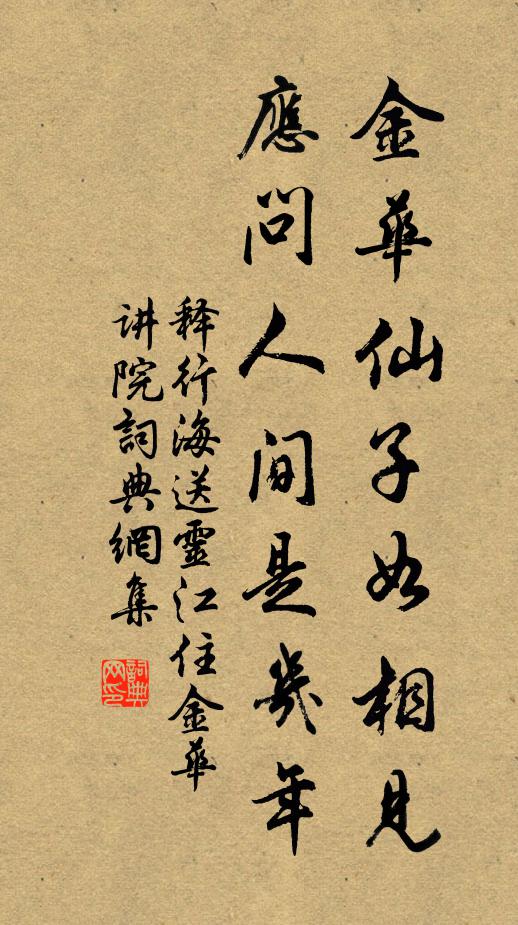 金華仙子如相見
應問人間是幾年
释行海送靈江住金華
讲院詞典網集
詞典网印